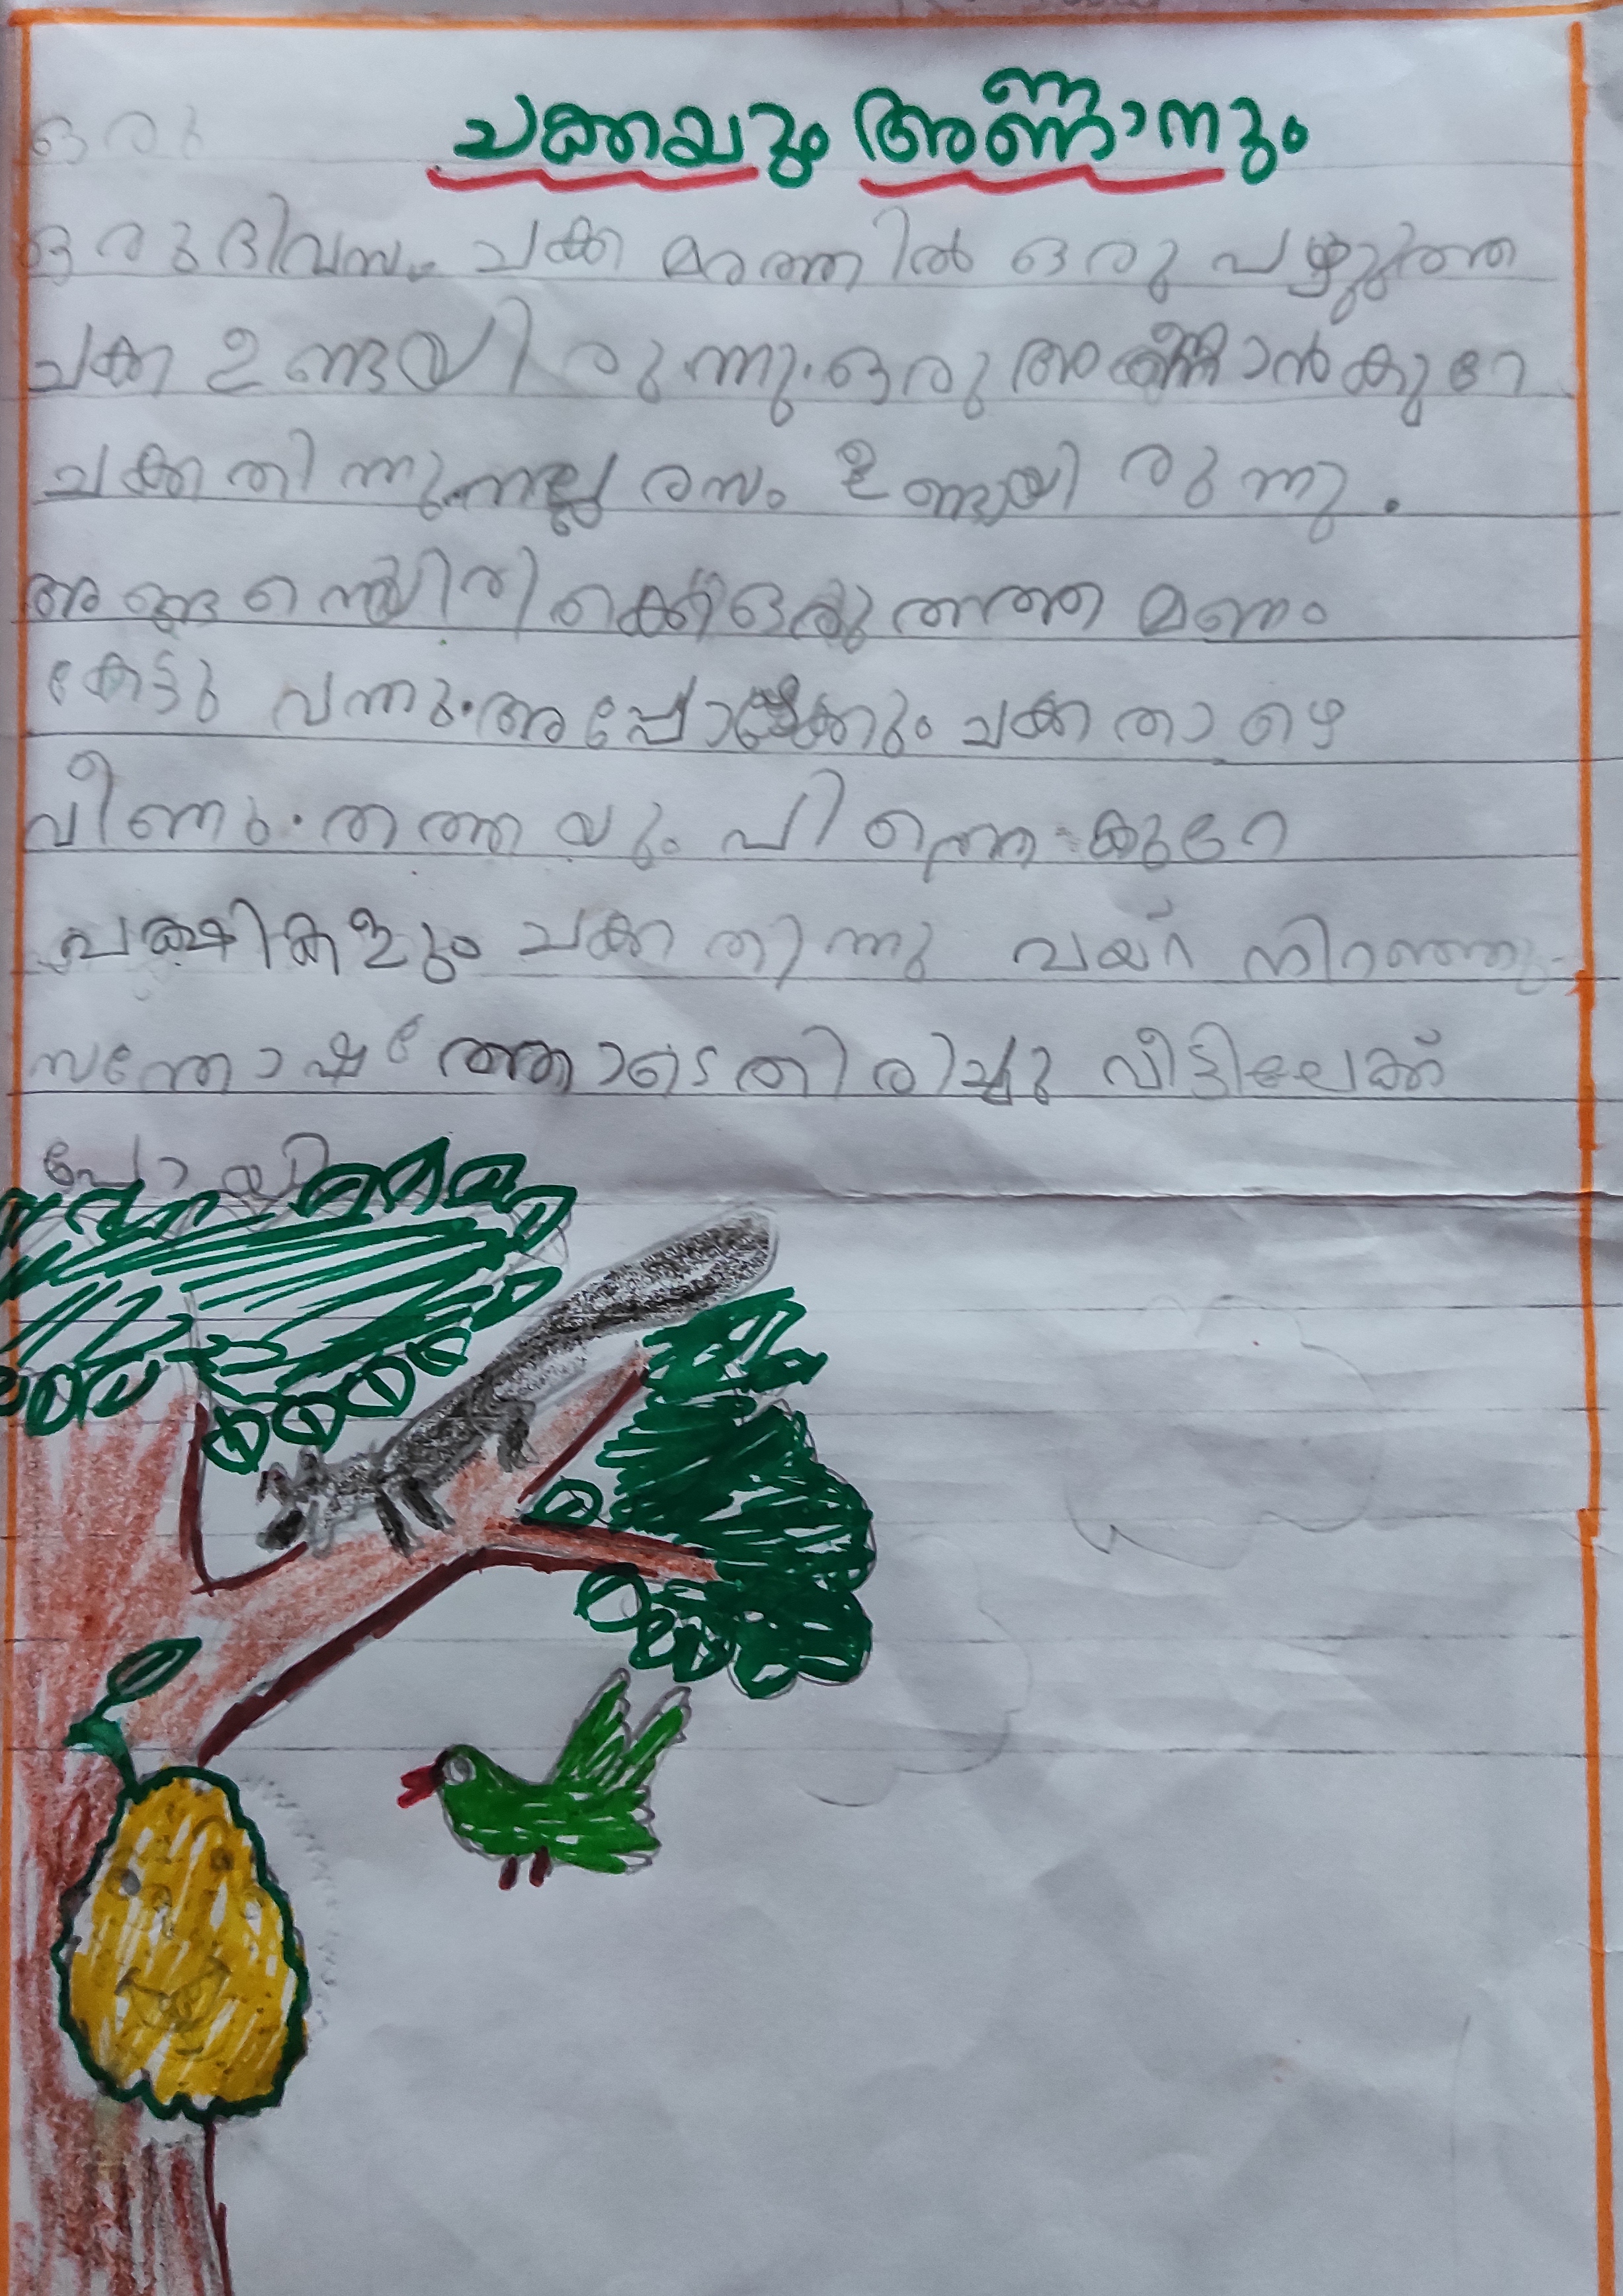 ചക്കയും അണ്ണാനും
ഒരു
ഒരു ദിവസം ചക്ക മരത്തിൽ ഒരു പഴുത്ത
ചക്ക ഉണ്ടായി രുന്നു. ഒരു അണ്ണാൻ കുറേ
ചക്ക തിന്നു. നല്ല രസം ഉണ്ടായി രുന്നു.
അങ്ങനെയിരിക്കെ ഒരു തത്ത മണം
കേട്ടു വന്നു. അപ്പോഴേക്കും ചക്ക താഴെ
വീണു. തത്തയും പിന്നെ കുറേ
പക്ഷികളും ചക്ക തിന്നു വയറ് നിറഞ്ഞു
സന്തോഷത്തോടെ തിരിച്ചു വീട്ടിലേക്ക്
പോയി